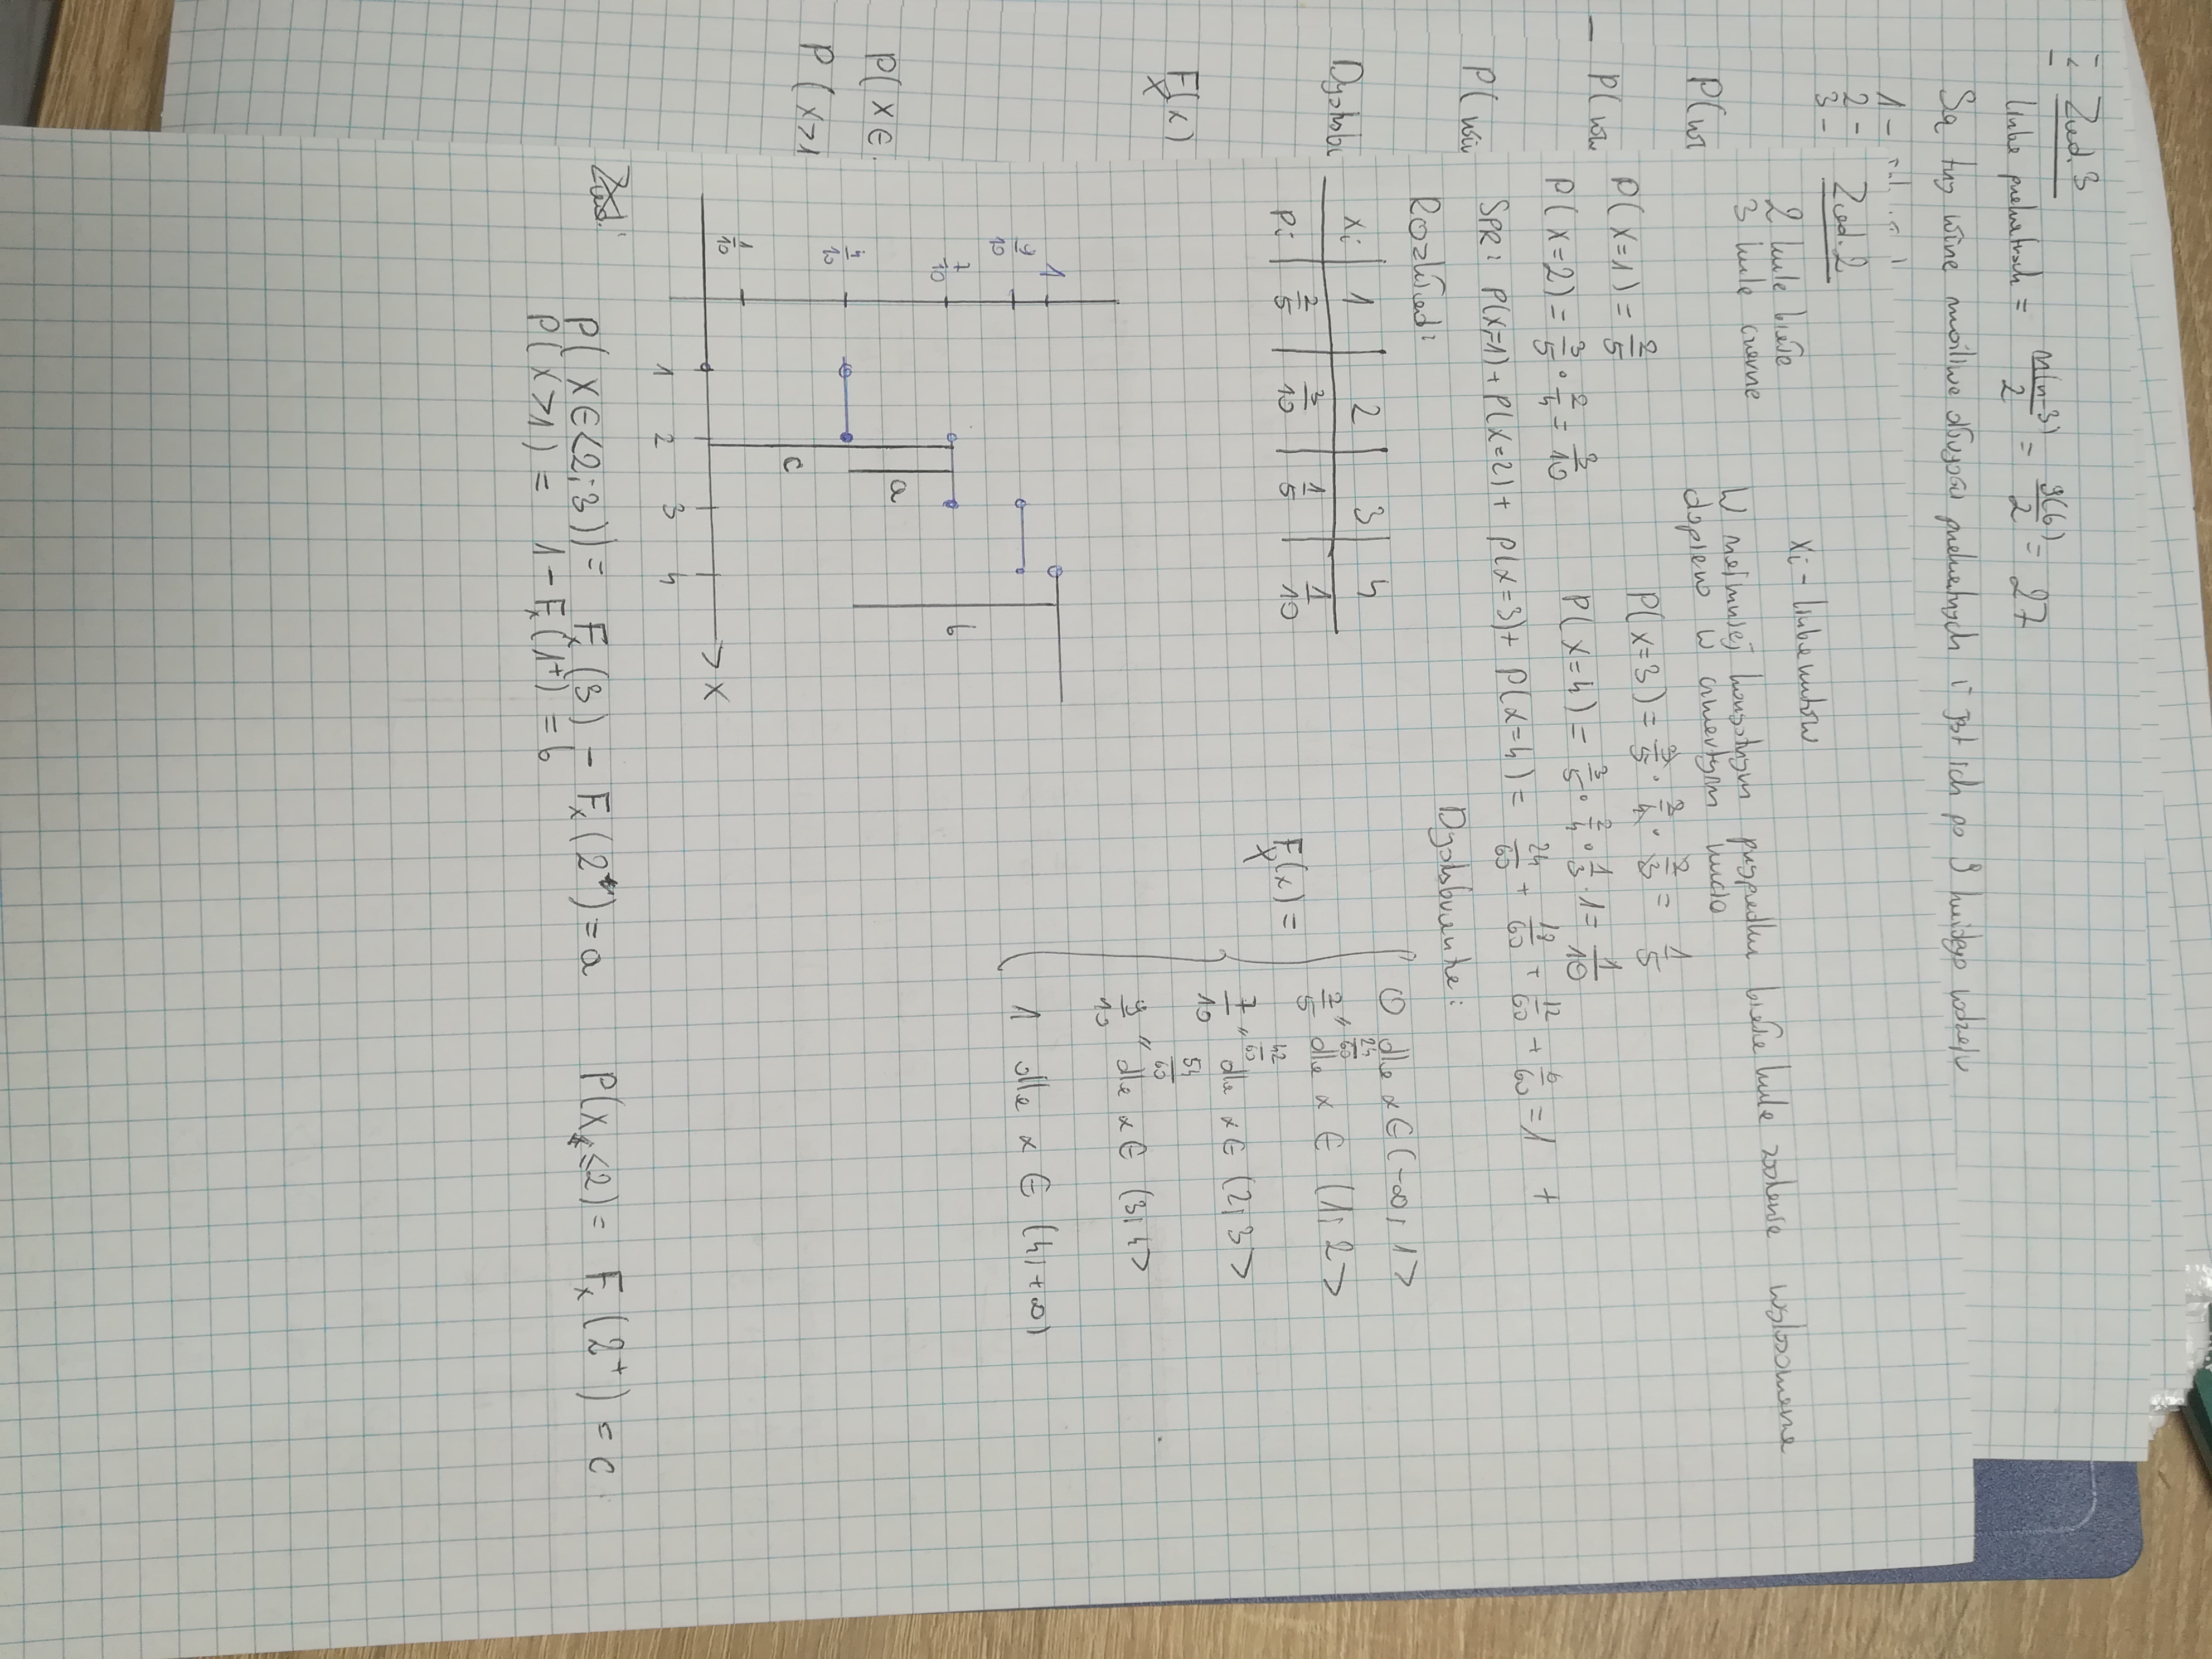 Zad. 3
liczba przekątnych = n(n-3)/2 = 9(6)/2 = 27
Są trzy różne możliwe długości przekątnych i jest ich po 9 każdego rodzaju
1 -
2 -
3 -
P(
P(
P(
Dystrybu
F_X(x)
P(X∈
P(X>1
Zad. 2
2 kule białe
3 kule czarne
x_i - liczba rzutów
W najmniej korzystnym przypadku biała kula zostanie wylosowana
dopiero w czwartym rzucie
P(X=1) = 2/5
P(X=2) = 3/5 · 2/4 = 3/10
P(X=3) = 3/5 · 2/4 · 2/3 = 1/5
P(X=4) = 3/5 · 2/4 · 1/3 · 1 = 1/10
SPR: P(X=1) + P(X=2) + P(X=3) + P(X=4) = 24/60 + 18/60 + 12/60 + 6/60 = 1 +
Rozkład:
x_i | 1 | 2 | 3 | 4
p_i | 2/5 | 3/10 | 1/5 | 1/10
Dystrybuanta:
F_X(x) =
0 dla x∈(-∞; 1>
2/5 = 24/60 dla x∈(1; 2>
7/10 = 42/60 dla x∈(2; 3>
9/10 = 54/60 dla x∈(3; 4>
1 dla x∈(4; +∞)
1
9/10
7/10
4/10
1/10
1 2 3 4 x
c
a
b
P(X∈<2;3)) = F_X(3) - F_X(2) = a
P(X≤2) = F_X(2⁺) = c
P(X>1) = 1 - F_X(1⁺) = b